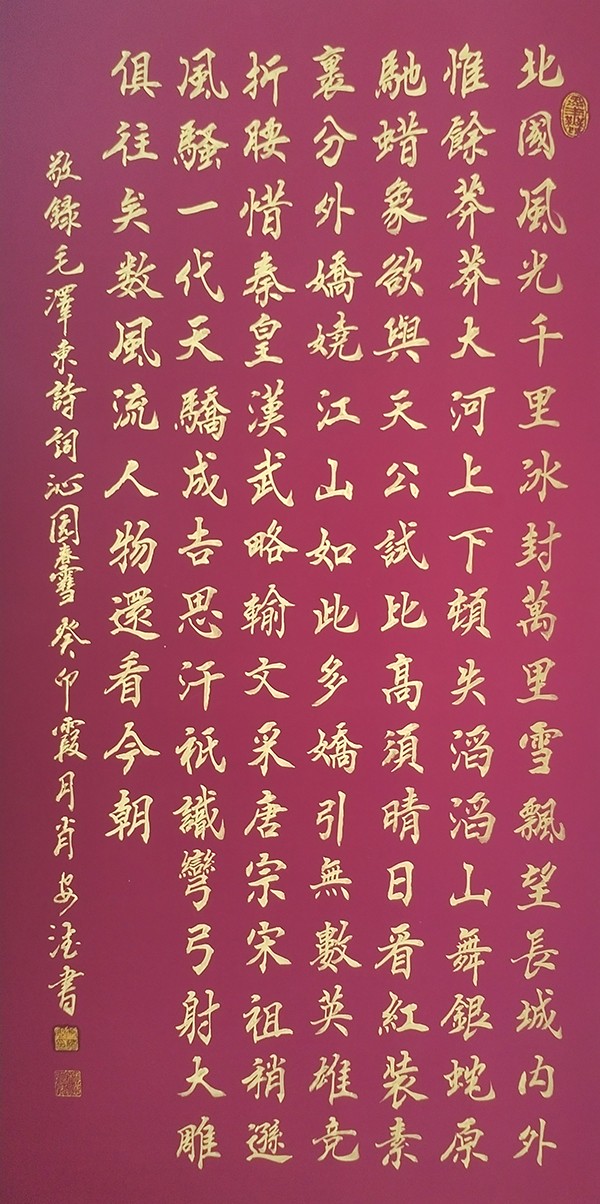 北國風光千里冰封萬里雪飄望長城内外
惟餘莽莽大河上下頓失滔滔山舞銀蛇原
馳蜡象欲與天公試比高須晴日看紅装素
裹分外嬌嬈江山如此多嬌引無數英雄竞
折腰惜秦皇漢武略輸文采唐宗宋祖稍遜
風騷一代天驕成吉思汗衹識彎弓射大雕
俱往矣数風流人物還看今朝
敬録毛澤東詩詞沁园春雪癸卯霞月肖安書